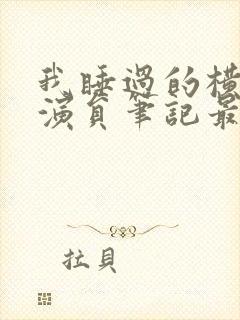 我睡過的橫
演員筆記最
拉貝